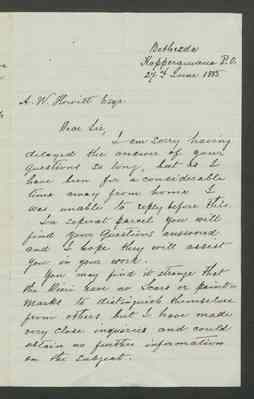 Bethesda
Kopperamana P.O.
27th June 1885
A. W. Howitt Esqr
Dear Sir,
I am sorry having
delayed the answer of your
Questions so long, but as I
have been for a considerable
time away from home I
was unable to reply before this.
In seperat parcel you will
find your Questions answered
and I hope they will assist
you in your work.
You may find it strange that
the Dieri have no Scars or paint
Marks to distinguish themselves
from others, but I have made
very close inquiries and could
obtain no further information
on the Subject.